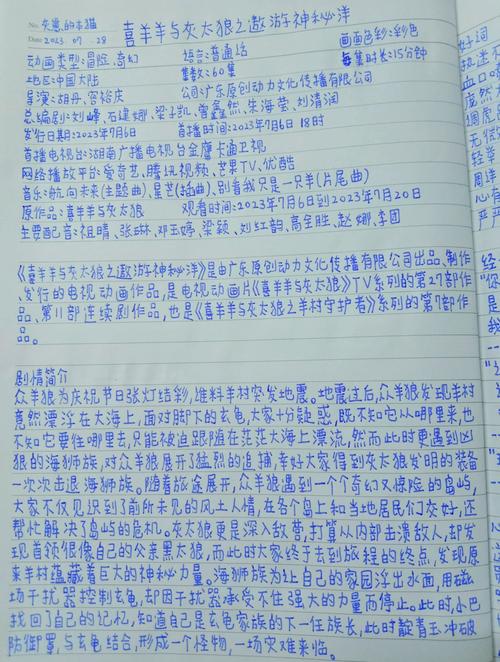 No. 灰慕的本猫
Date 2023 07 28
喜羊羊与灰太狼之遨游神秘洋
动画类型:冒险、奇幻 语言:普通话 画面色彩:彩色
地区:中国大陆 集数:60集 每集时长:15分钟
导演:胡丹、容裕庆 公司:广东原创动力文化传播有限公司
总编剧:刘峰、石建娜、梁子凯、曾鑫然、朱海莹、刘清润
发行日期:2023年7月6日 首播时间:2023年7月6日18时
首播电视台:湖南广播电视台金鹰卡通卫视
网络播放平台:爱奇艺、腾讯视频、芒果TV、优酷
音乐:航向未来(主题曲)、星芒(插曲)、别看我只是一只羊(片尾曲)
原作品:喜羊羊与灰太狼 观看时间:2023年7月6日到2023年7月20日
主要配音:祖晴、张琳、邓玉婷、梁颖、刘红韵、高全胜、赵娜、李团
《喜羊羊与灰太狼之遨游神秘洋》是由广东原创动力文化传播有限公司出品、制作
、发行的电视动画作品,是电视动画片《喜羊羊与灰太狼》TV系列的第27部作
品、第11部连续剧作品,也是《喜羊羊与灰太狼之羊村守护者》系列的第7部作
品。
剧情简介
众羊狼为庆祝节日张灯结彩,谁料羊村突发地震。地震过后,众羊狼发现羊村
竟然漂浮在大海上,面对脚下的玄龟,大家十分疑惑,既不知它从哪里来,也
不知它要往哪里去,只能被迫跟随在茫茫大海上漂流,然而此时更遇到凶
狠的海狮族,对众羊狼展开了猛烈的追捕,幸好大家得到灰太狼发明的装备
一次次击退海狮族。随着旅途展开,众羊狼遇到一个个奇幻又惊险的岛屿,
大家不仅见识到了前所未见的风土人情,在各个岛上和当地居民们交好,还
帮忙解决了岛屿的危机。灰太狼更是深入敌营,打算从内部击溃敌人,却发
现首领很像自己的父亲黑太狼,而此时大家终于去到旅程的终点,发现原
来羊村蕴藏着巨大的神秘力量。海狮族为让自己的家园浮出水面,用磁
场干扰器控制玄龟,却因干扰器承受不住强大的力量而停止。此时,小巴
找回了自己的记忆,知道自己是玄龟家族的下一任族长,此时靛青玉冲破
防御罩,与玄龟结合,形成一个怪物,一场灾难来临。
好词